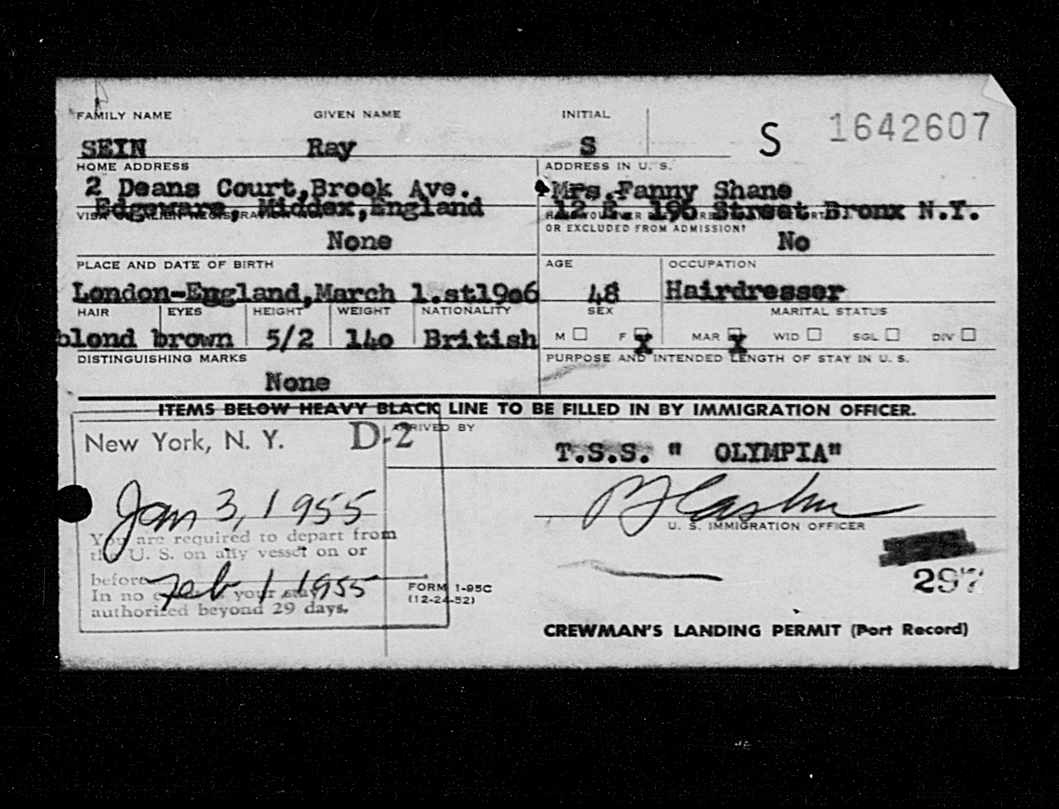 FAMILY NAME GIVEN NAME INITIAL
S 1642607
SEIN Ray S
HOME ADDRESS ADDRESS IN U. S.
2 Deans Court,Brook Ave. Mrs.Fanny Shane
Edgeware, Middex,England 12 E. 196 Street Bronx N.Y.
OR EXCLUDED FROM ADMISSION?
None No
PLACE AND DATE OF BIRTH AGE OCCUPATION
London-England,March 1.st19o6 48 Hairdresser
HAIR EYES HEIGHT WEIGHT NATIONALITY SEX MARITAL STATUS
blond brown 5/2 14o British M F X MAR X WID SGL DIV
DISTINGUISHING MARKS PURPOSE AND INTENDED LENGTH OF STAY IN U. S.
None
ITEMS BELOW HEAVY BLACK LINE TO BE FILLED IN BY IMMIGRATION OFFICER.
New York, N. Y. D-2 ARRIVED BY
T.S.S. " OLYMPIA"
Jan 3, 1955
U. S. IMMIGRATION OFFICER
You are required to depart from
the U. S. on any vessel on or
before Feb 1 1955
In no your stay
authorized beyond 29 days.
FORM I-95C
(12-24-52)
297
CREWMAN'S LANDING PERMIT (Port Record)